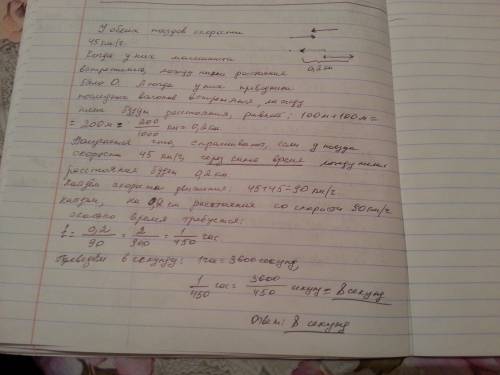 У обеих поездов скорости
45 км/ч.
Когда у них машинисты
встретились, между ними расстояния
было 0. А когда у них
последние вагоны встретились, между
ними будут расстояния, равной: 100м+100м=
= 200м = 200/1000 км = 0,2км.
0,2км
что, спрашивают, если у поезда
скорости 45 км/ч, через какое время между ними
расстояния будут 0,2 км.
Найдём скорости движения: 45+45=90 км/ч
найдём, на 0,2 км расстояния со скорости 90км/ч
сколько время требуется:
t = 0,2/90 = 2/900 = 1/450 час
Приведём в секунду: 1час = 3600 секунд,
1/450 час = 3600/450 секунд = 8 секунд
Ответ: 8 секунд